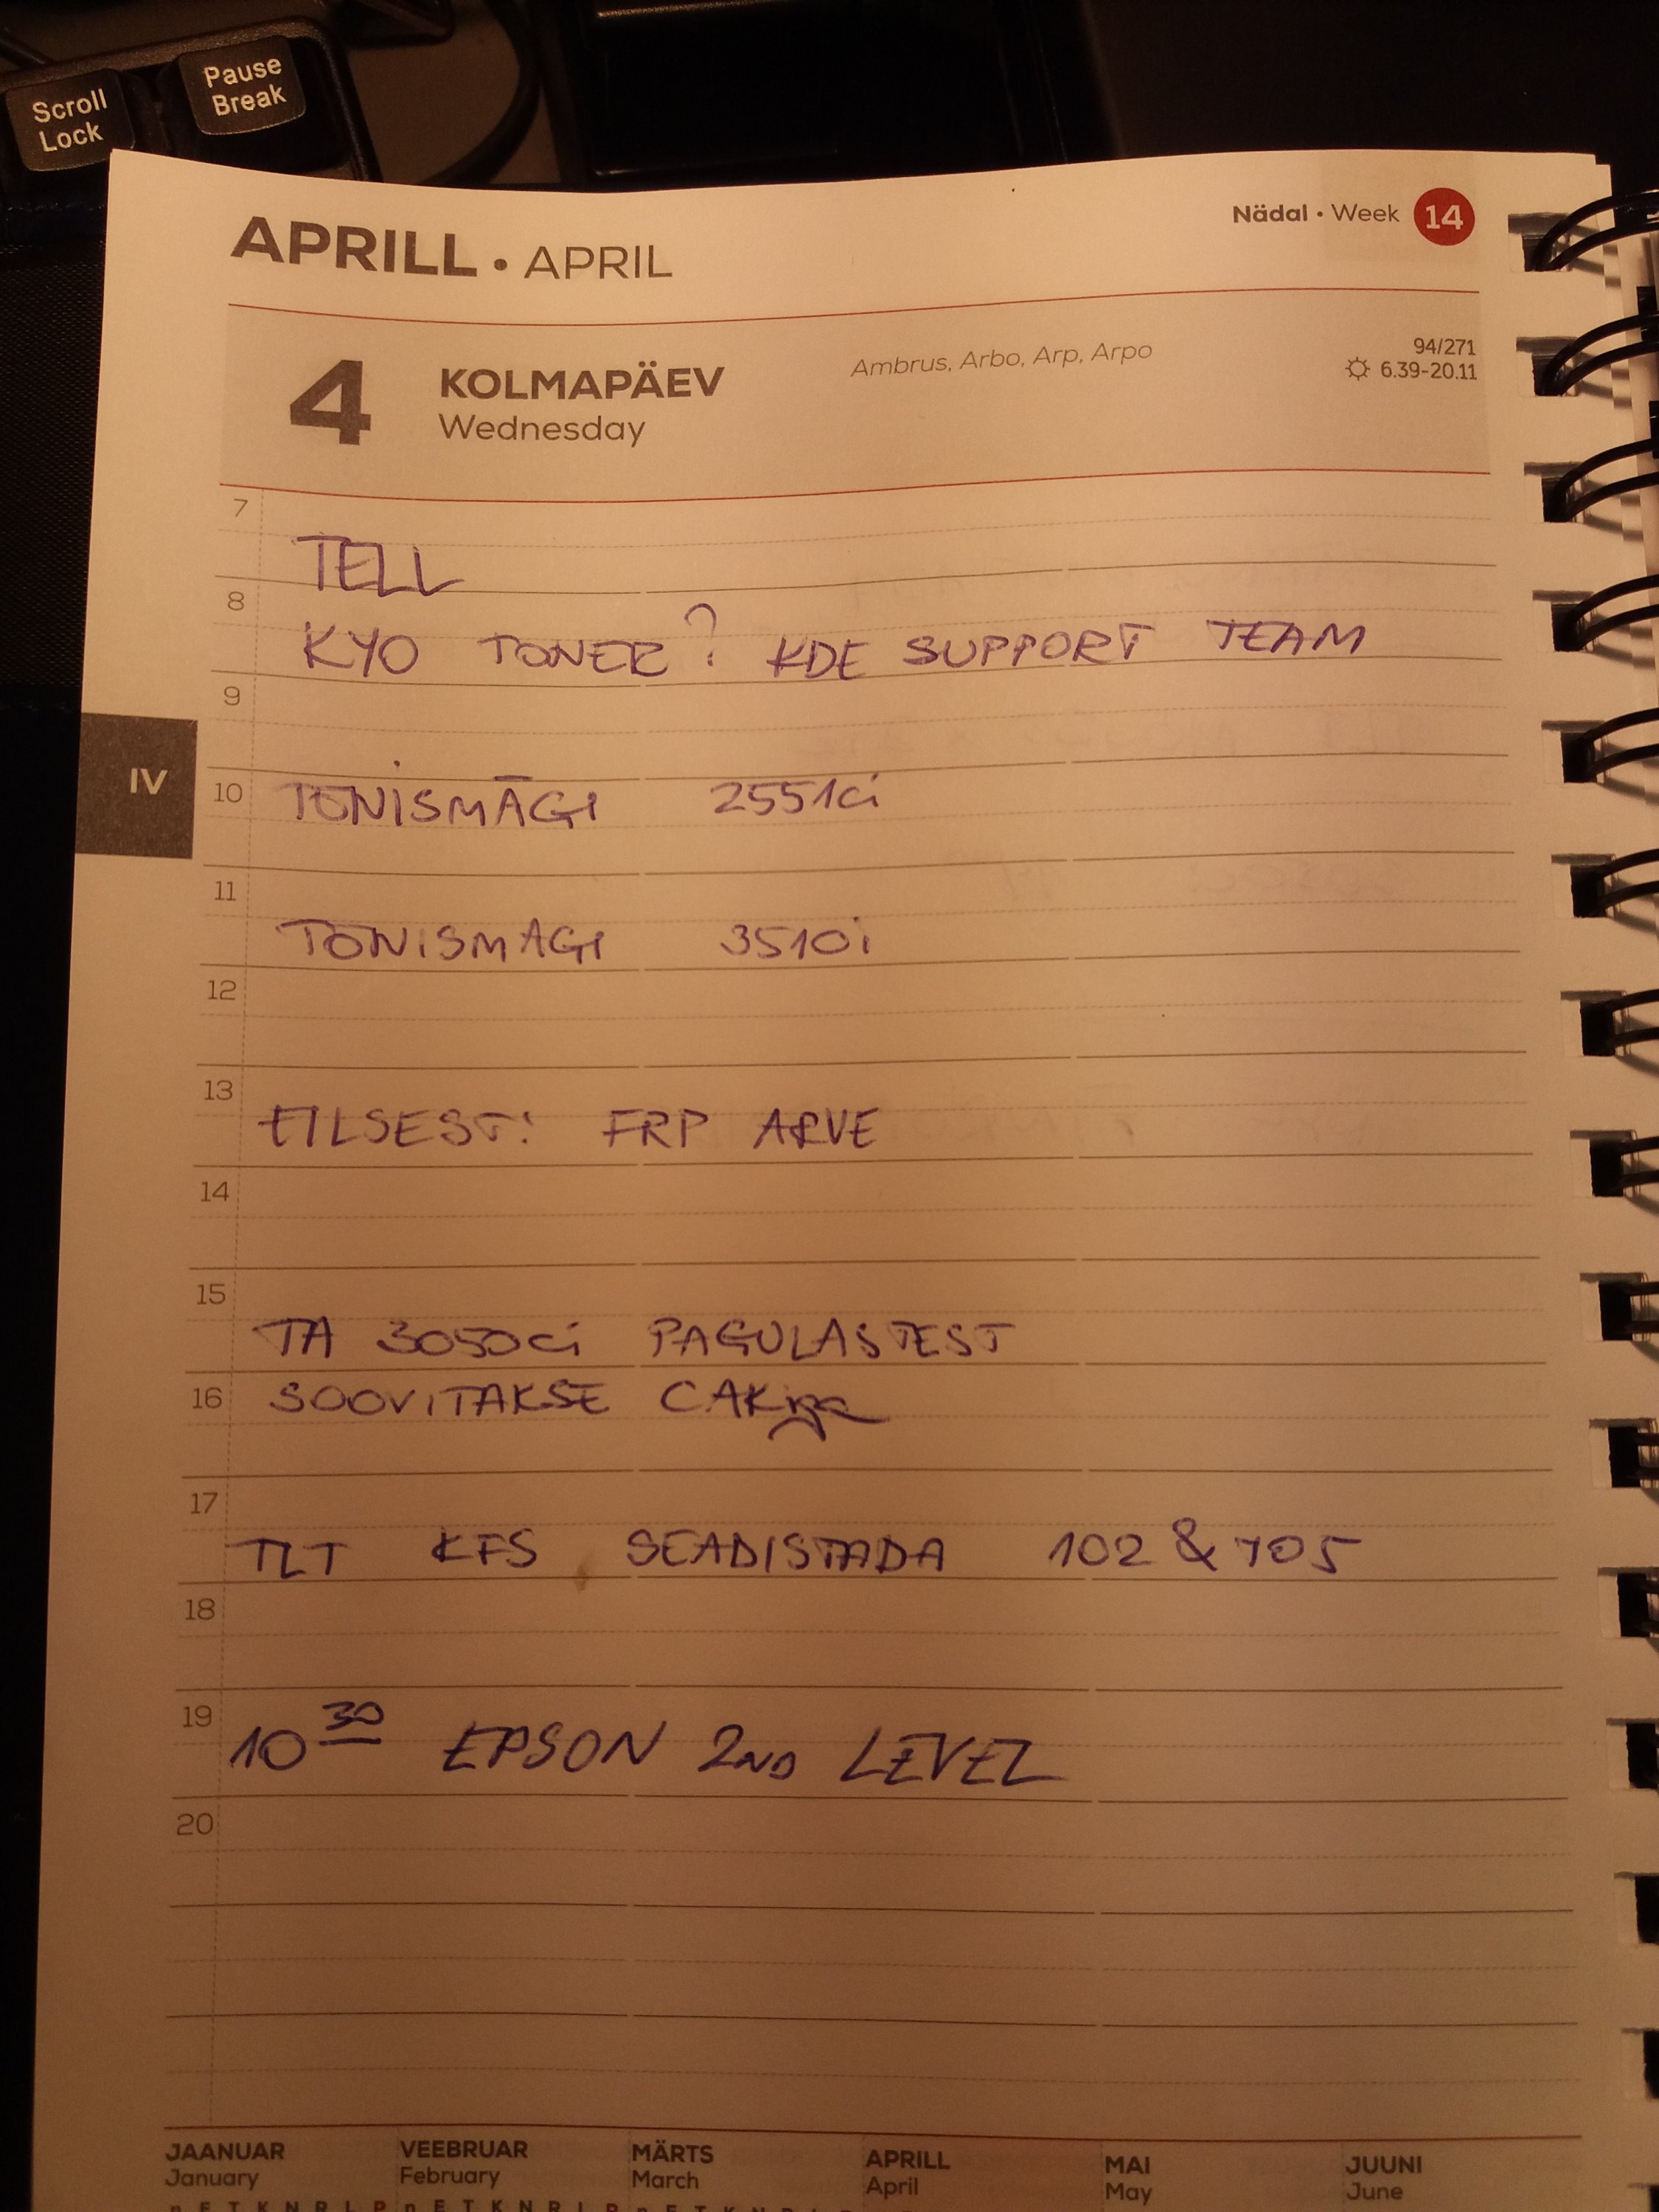 Scroll Lock
Pause Break
APRILL • APRIL
Nädal • Week 14
4 KOLMAPÄEV
Wednesday
Ambrus, Arbo, Arp, Arpo
94/271
6.39-20.11
7
TELL
8
KYO TONER? KDE SUPPORT TEAM
9
IV
10 TÕNISMÄGI 2551ci
11
TÕNISMÄGI 3510i
12
13
EILSEST: FRP ARVE
14
15
TA 3050ci PAGULASTEST
16 SOOVITAKSE CAKiga
17
TLT KFS SEADISTADA 102 & 705
18
19
10 30 EPSON 2ND LEVEL
20
JAANUAR VEEBRUAR MÄRTS APRILL MAI JUUNI
January February March April May June